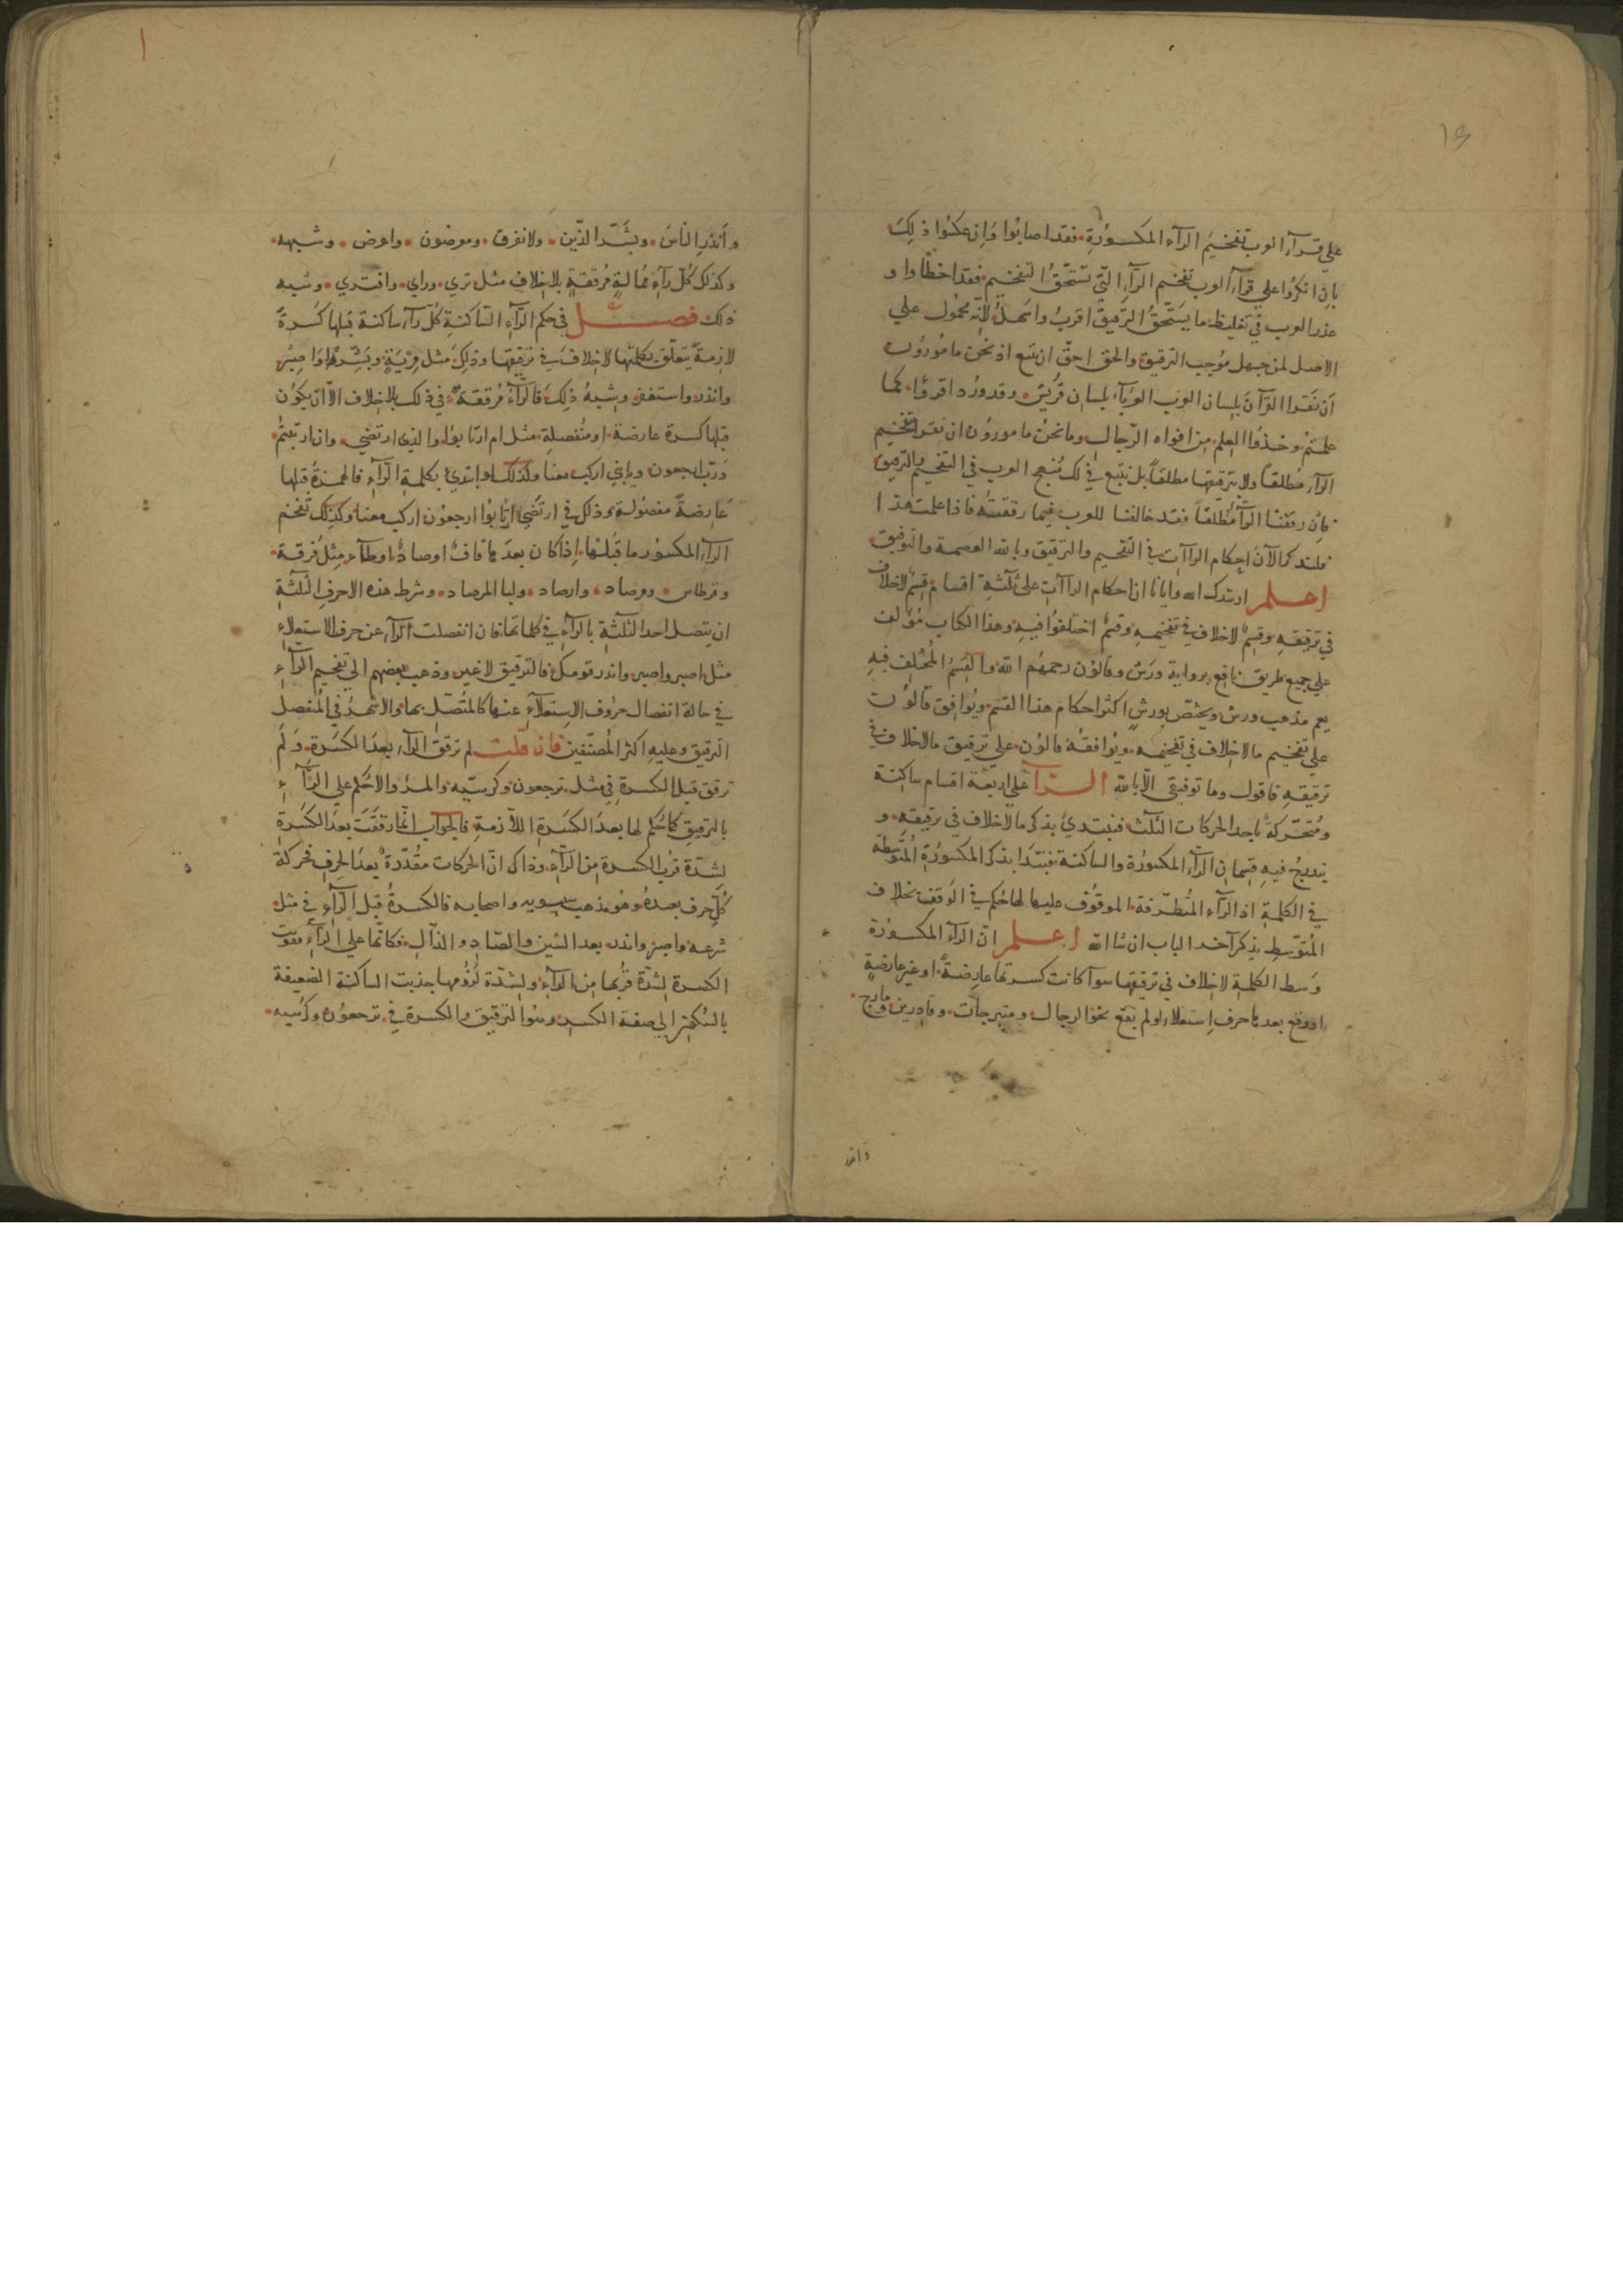 ١٤
علي قرآء العرب تفخيمَ الرآء المكسُورَةِ فقد اصابُوا وَاِن عكسُوا ذلِكَ
بان انكرُوا علي قرآء العرب تفخيم الرّآءِ التّي تَستَحِقُّ التفخيم فقد اخطأوا و
عذر العرب في تغليظ ما يَستَحِقُّ الترقيقَ اقربُ واسَهلُ لانّه محمُول علي
الاصل لمن جهل مُوجب الترقيق والحق احقّ ان يتبع اذ نحن مامُورُون
اَن نَقرا القرآنَ بلسان العرب العربآء بلسان قُريش وقد ورُد اقرؤا كما
علمتمْ وخذُوا العِلم مِن افواه الرّجال وما نحنُ مامورُون ان نقرا بتفخيم
الرآء مُطلقاً ولا بترقيقها مطلقاً بل نتبع في ذلك نهج العرب في التفخيم والترقيق
فان رققنا الرآء مُطلقاً فقد خالفنا للعرب فيما رققتهُ فاذا علمت هذا
فلنذكر الآنَ احكام الراآت في التفخيم والترقيق وبالله العصمة والتوفيق
اعلم ارشدك الله وايانا ان احكام الراآتِ علي ثلثةِ اقسام قِسمٌ لاخلاف
في ترقيقه وقِسمٌ لاخلاف في تفخيمِه وقسمٌ اختلفُوا فيهِ وهذا الكتاب مُؤلف
علي جميع طريق نافع برواية ورَش وقالوُن رحمهُم الله والقِسمُ المُختلف فيهِ
يعم مذهب ورش ويختصّ بورشٍ اكثرُ احكام هذا القسم ويُوافق قالوُن
علي تفخيم مالاخلاف في تفخيمه ويُوافقهُ قالوُن علي ترقيق مالاخلاف في
ترقيقهِ فاقول وما توفيقي الّا بالله الرآء علي اربعة اقسام ساكنة
ومُتحرّكةٌ باحد الحركات الثلث فنبتديُ بذكر مالاخلاف في ترقيقه و
يندرجُ فيهِ قسمان الرآء المكسورُة والساكنة فنبتدَا بذكر المكسورُةِ المُتوَسِطة
في الكلمةِ اذ الرآء المُتطرّفة الموقوُف عليها لها حُكم في الوَقف بخلاف
المُتوَسِطِ بذكر آخر الباب ان شا الله اعلم انّ الرآء المكسورُة
وَسط الكلمة لاخلاف في ترقيقها سوآ كانت كسرتها عارِضةً او غير عارضةٍ
او وقع بعدها حرف اِستعلاء او لم يقع نحو الرجال ومتبرجات وقادرين ومارج
وانذر
وَاَنذرِ الناسَ وبَشّر الذّين ولا نفرق ومعرضون واعرض وشبهه
وكذلك كُلّ رآءٍ مُمالةٍ مُرققةٍ بلاخلافٍ مثل تري وراي وافتري وشبه
ذلك فصل في حكم الرّآءِ السّاكنةِ كُلّ رآء ساكنة قبلها كَسرةً
لازمةً يتعلّق بكلمتها لاخلافَ في ترقيقها وذلِكَ مثل مِريَةٍ وبَشّرهُم وَاصبر
وانذر واستغفر وشبهُ ذلِكَ فالرّآءُ مُرققةٌ في ذلك بلاخلاف الاّ ان يكوُن
قبلها كسرة عارضة او مُنفصلةِ مثل ام ارتابوُا والذي ارتضي وان ارتبتُم
وَربّ ارجعون ويابني اركب معنا وكذلك لو ابتدئ بكلمةِ الرّآءِ فالهمزةُ قبلها
عَارضةً مفصُولة وذلك في ارتضَي ارتابُوا ارجعُون اركب معنا وكذلك تفخم
الرآء المكسوُر ما قبلها اِذا كان بعدَ ها قافٌ اوصادٌ اوطآء مِثلُ فُرقة
وقرطاس ومرصاد وارصاد ولبا المرصاد وشرط هذه الاحرفِ الثلثةِ
ان يتصل احد الثلثةِ بالرآءِ في كلماتها فان انفصلت الرآء عن حرف الاستعلاءِ
مثل اصبر واصبر وانذر قومك فالترقيق لاغير وذهب بعضهم الي تفخيم الرآءِ
في حالة انفصال حرُوف الاِستعلآءِ عنها كالمتُصّل بها والاشهرُ في المُنفصل
الترقيق وعليهِ اكثر المُصنّفين فان قلت لم ترقق الرآء بعدَ الكسَرة وَلَم
ترقق قبل الكسرة في مثل ترجعون وكرسيّه والمرءِ والاحُكم علي الرّآءِ
بالترقيق كماحُكم لها بعدَ الكسَرةِ اللاّزمةِ فالجواب انمّا رققَت بعدَ الكسَرةِ
لشدّة قرُب الكسرة مِن الرآءِ وذاك انّ الحركات مقُدّرةٌ بعدَ الحِرف فحركة
كُلّ حرف بعدهُ وهُو مذهب سيبويه واصحابه فالكسرةُ قبل الرآءِ في مثل
شرعه واصبر وانذر بعد الشين والصّاد والذّال فكانّها علي الرآءِ فقوّت
الكسرة لشدّة قربُها مِن الرآءِ ولشدّة لُزوُمها جذبت الساكنة الضعيفة
بالسُكون الي صفة الكسر وهوُ الترقيق والكسرة في ترجعوُن وكرُسيه